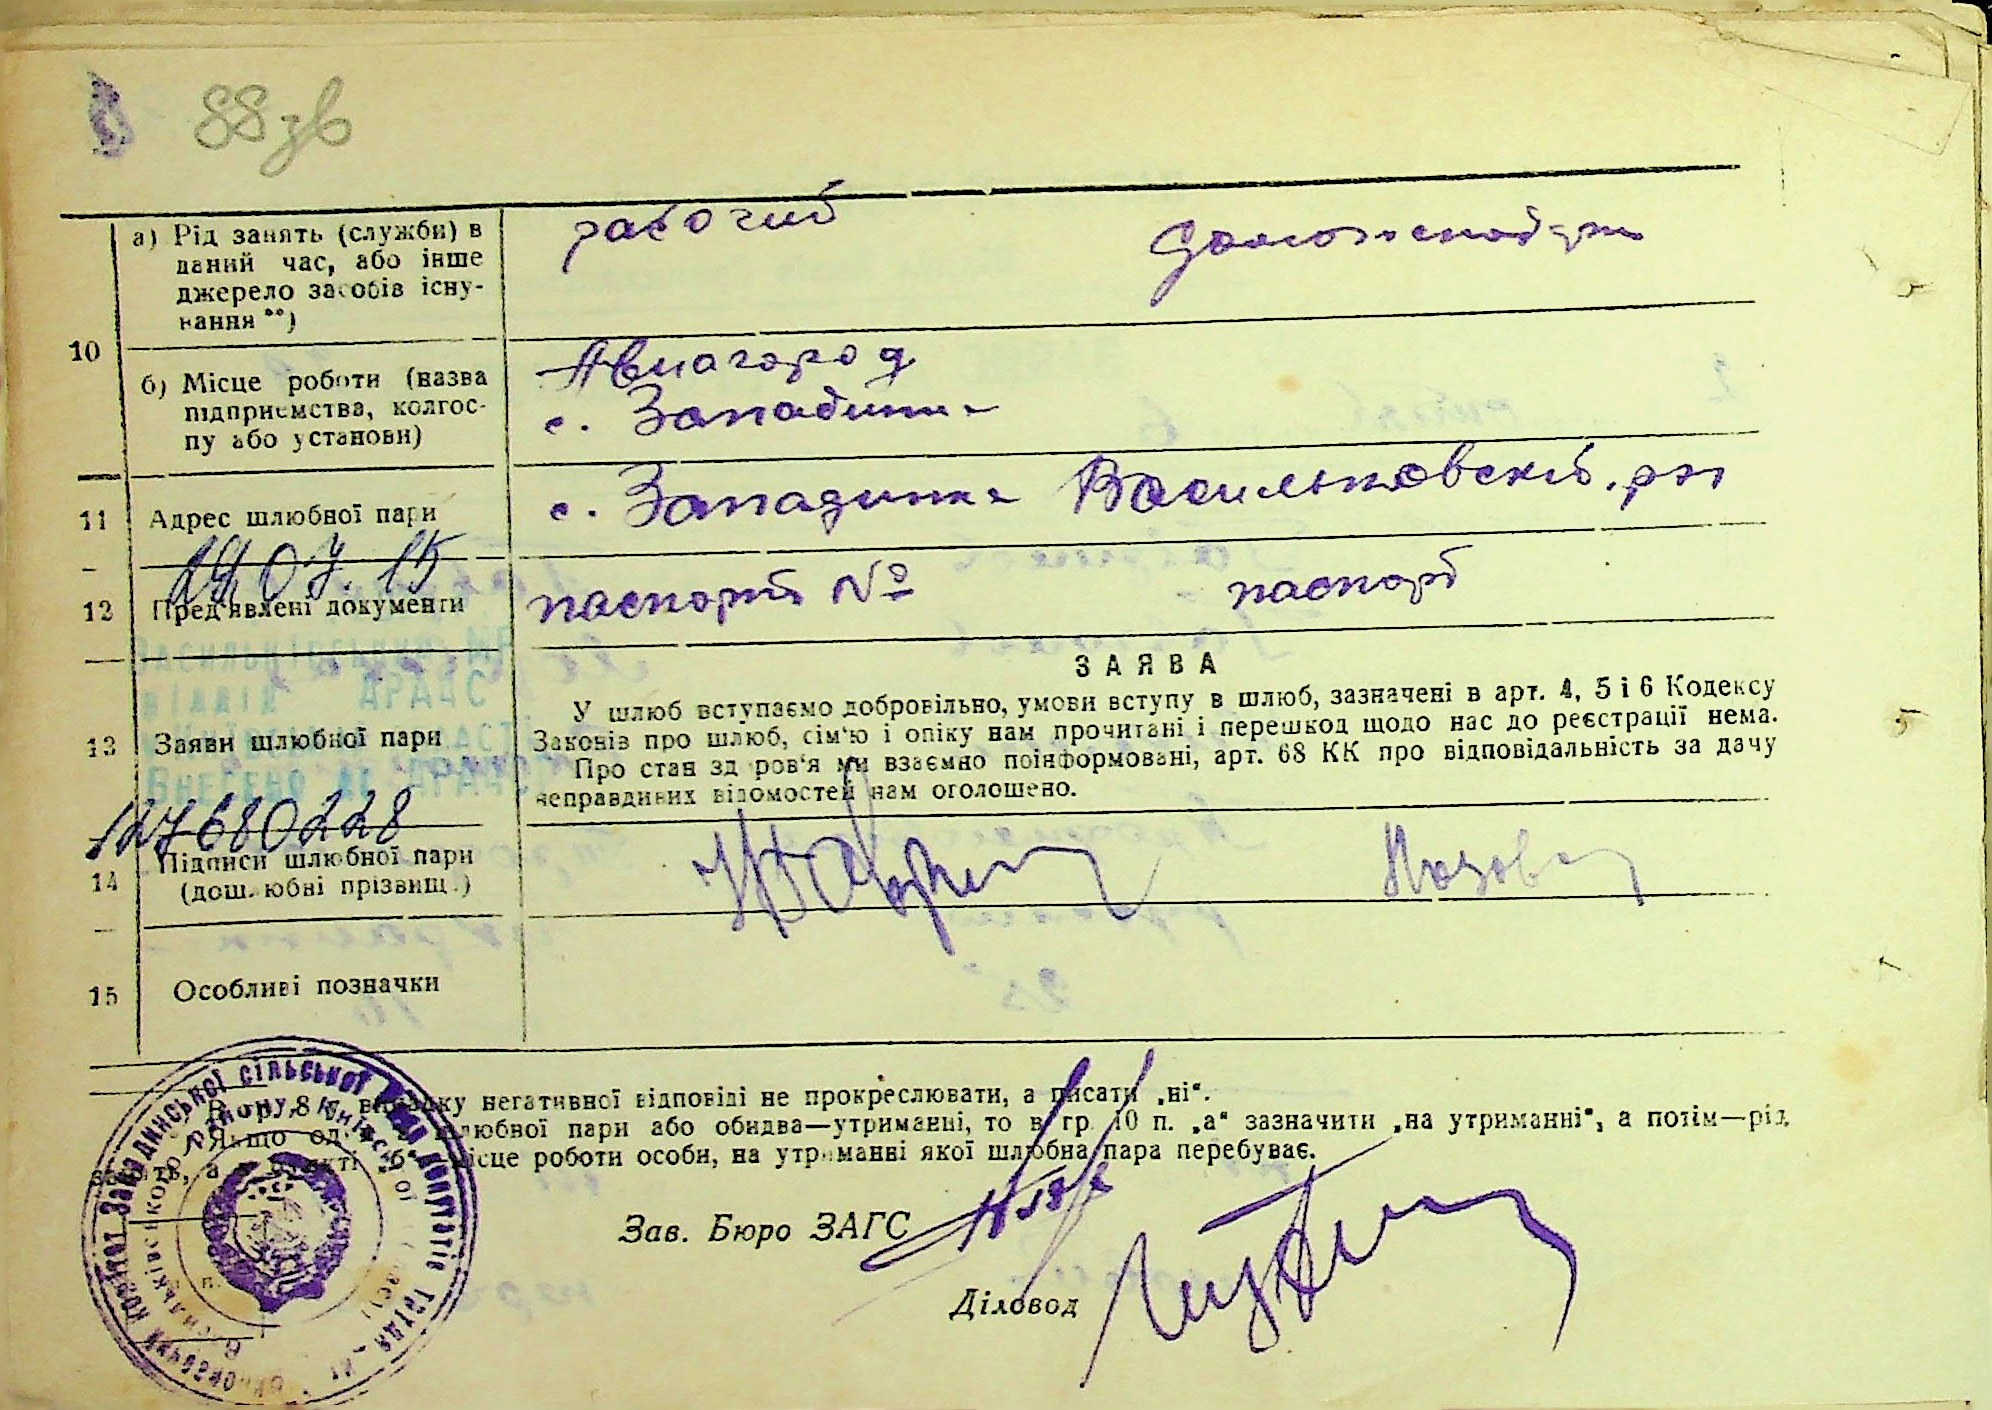 88 зв
10
а) Рід занять (служби) в
даний час, або інше
джерело засобів існу-
вання **)
рабочий
домохозяйка
б) Місце роботи (назва
підприємства, колгос-
пу або установи)
Авиагород
с. Западинка
11
Адрес шлюбної пари
с. Западинка Васильковский р-н
24.07.15
12
Пред'явлені документи
паспорт №
паспорт
Васильківський МР
відділ ДРАЦС
Внесено до ДРАЦС
127680228
13
Заяви шлюбної пари
ЗАЯВА
У шлюб вступаємо добровільно, умови вступу в шлюб, зазначені в арт. 4, 5 і 6 Кодексу
Законів про шлюб, сім'ю і опіку нам прочитані і перешкод щодо нас до реєстрації нема.
Про стан здоров'я ми взаємно поінформовані, арт. 68 КК про відповідальність за дачу
неправдивих відомостей нам оголошено.
14
Підписи шлюбної пари
(дошлюбні прізвища)
15
Особливі позначки
В гр. 8 у випадку негативної відповіді не прокреслювати, а писати „ні“.
Якщо од шлюбної пари або обидва—утриманні, то в гр. 10 п. „а“ зазначити „на утриманні“, а потім—рід
занять, а в пункті „б“ місце роботи особи, на утриманні якої шлюбна пара перебуває.
Зав. Бюро ЗАГС
Діловод
Виконавчий комітет Западинської сільської Ради депутатів трудящих
Васильківського району, Київської області